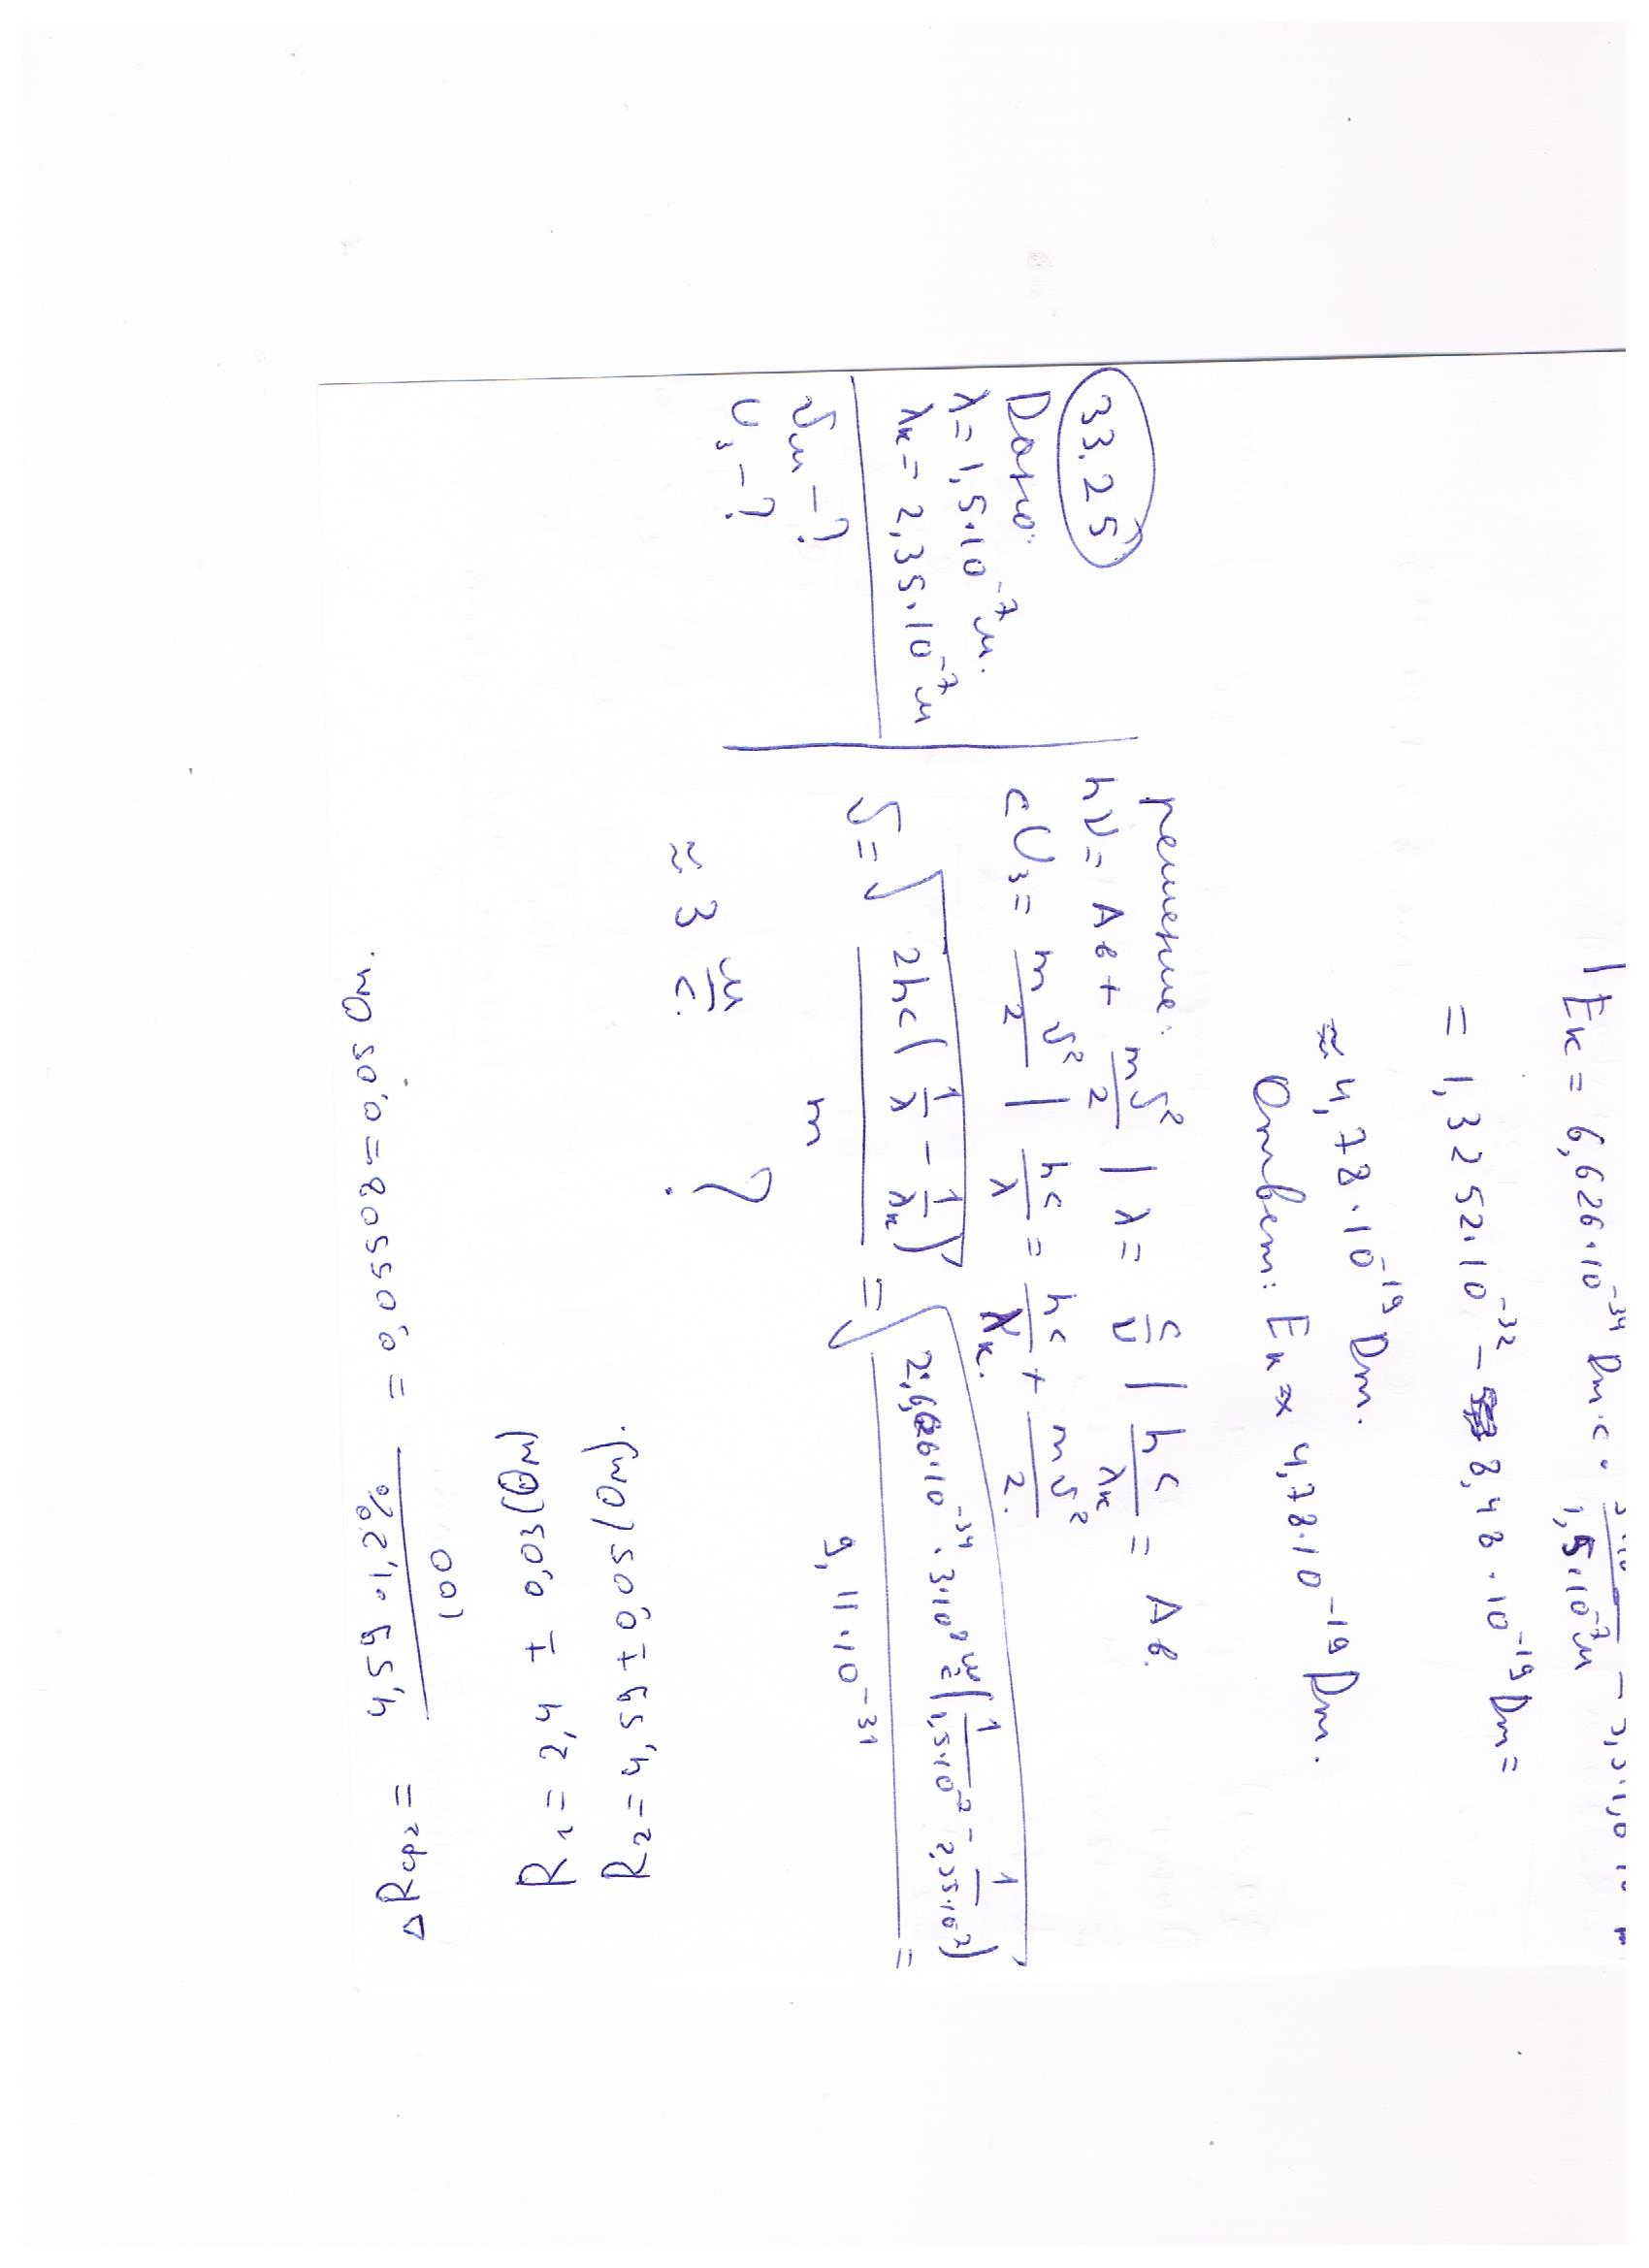 | Eк = 6,626·10⁻³⁴ Дж·с ·
1,5·10⁻⁷м
= 1,3252·10⁻³² − 8,48·10⁻¹⁹Дж =
≈ 4,78·10⁻¹⁹ Дж.
Ответ: Eк ≈ 4,78·10⁻¹⁹Дж.
33.25
Дано:
λ = 1,5·10⁻⁷м.
λк = 2,35·10⁻⁷м
υм − ?
Uз − ?
решение:
hν = Aв + mυ²/2 | λ = c/ν | hc/λк = Aв.
eUз = mυ²/2 | hc/λ = hc/λк. + mυ²/2.
υ = √(2hc(1/λ − 1/λк)/m) = √(2·6,626·10⁻³⁴ · 3·10⁸ м/с (1/1,5·10⁻⁷ − 1/2,35·10⁻⁷)/9,11·10⁻³¹) =
≈ 3 м/с. ?
ΔRср₂ = 4,59·1,2%/100 = 0,05508 = 0,05 Ом.
R₁ = 2,4 ± 0,03(Ом)
R₂ = 4,59 ± 0,05(Ом).